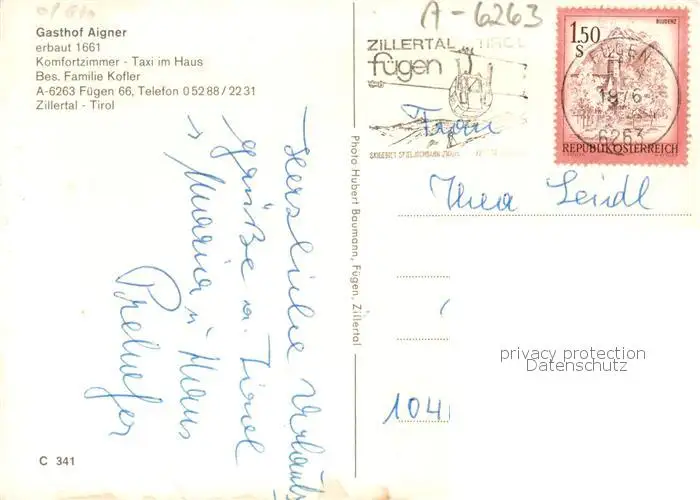 A-6263
Gasthof Aigner
erbaut 1661
Komfortzimmer - Taxi im Haus
Bes. Familie Kofler
A-6263 Fügen 66, Telefon 0 52 88 / 22 31
Zillertal - Tirol
Herzliche Urlaubs
grüße a. Tirol
Maria u Hans
C 341
Photo Hubert Baumann, Fügen, Zillertal
ZILLERTAL TIROL
fügen
BLUDENZ
1.50
S
FÜGEN
1976
6263
REPUBLIK ÖSTERREICH
Frau
Thea Seidl
1041
privacy protection
Datenschutz